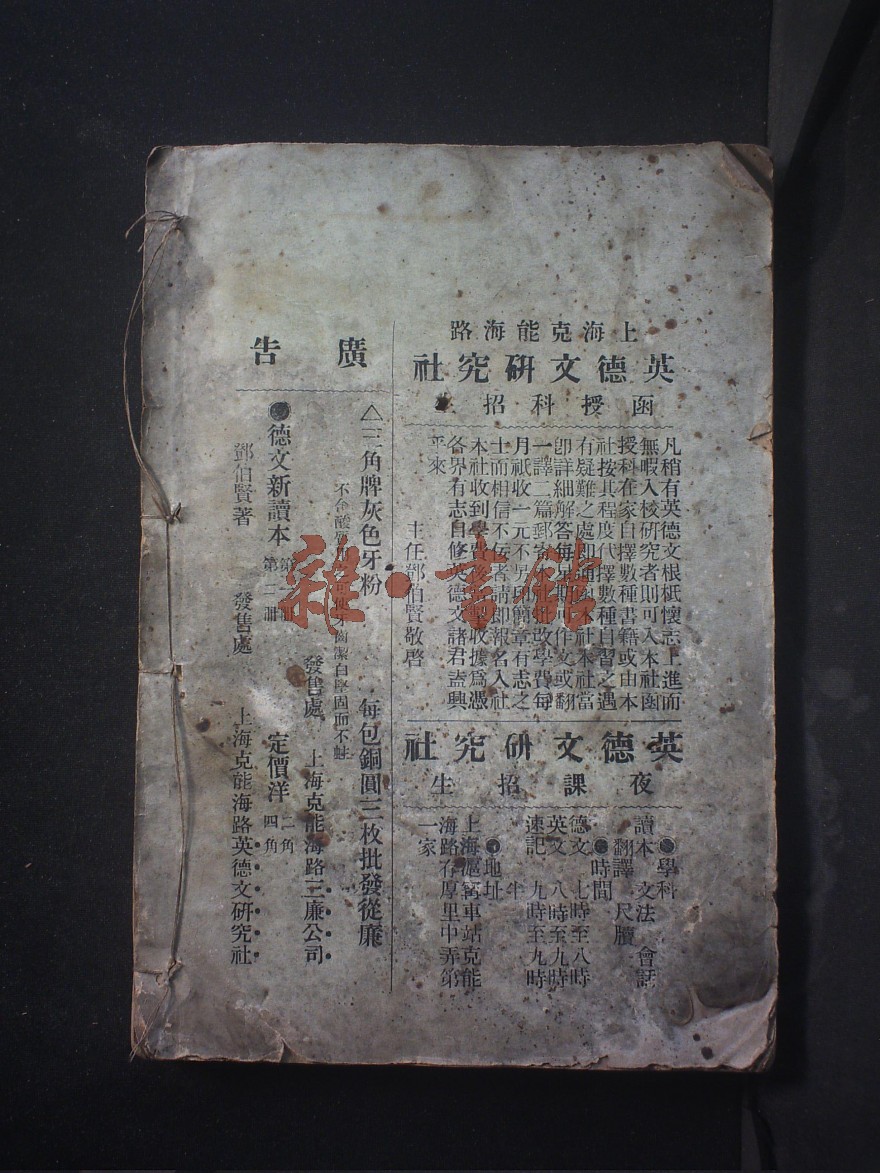 上海克能海路
英德文研究社
函授科招生
凡稍有英德文根柢懷志上進而
無暇入校研究者則可入本社函
授科在家自擇數種書籍或由本
社按其程度代擇數種自習之遇
有疑難之處即通函本社本社當
卽詳細解答每星期可作文或翻
一譯二篇郵寄本社批改學費每
月祇收一元不另取簡章有志之
士而相信不佞者請即報名入社
本社收到學費後製收據爲憑
各界有志自修英德文諸君盍興
乎來
主任鄧伯賢敬啓
英德文研究社
夜課招生
●學科
讀本 文法 會話
翻譯 尺牘
●時間
德文 七時至八時
英文 八時至九時
速記 九時至九時
半
●地址
上海滬寗車站克能
海路存厚里中弄第
一家
廣告
△三角牌灰色牙粉 每包銅圓三枚批發從廉
不含酸 使牙齒潔白堅固而不蛀
發售處 上海克能海路三廉公司
●德文新讀本 第一冊 第二冊 定價洋 二角 四角
鄧伯賢著 發售處 上海克能海路英德文研究社
雜·書館